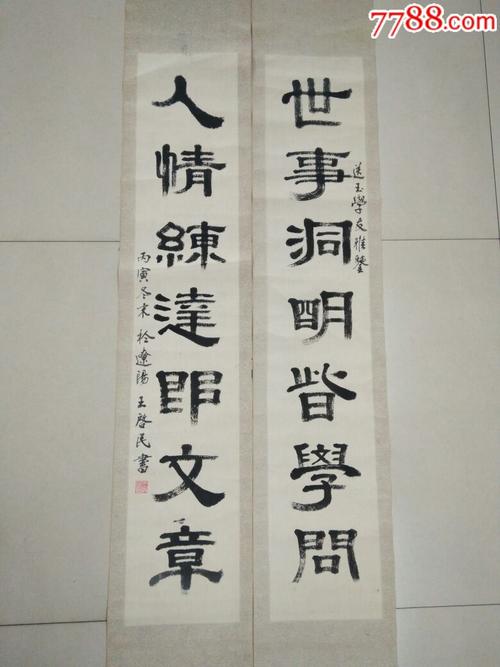 7788.com
世事洞明皆學問
送玉學友雅鑒
人情練達即文章
丙寅冬末於遼陽 王啓民書